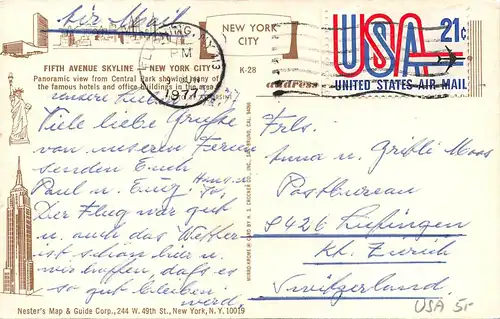 Air Mail
NEW YORK
CITY
K-28
FIFTH AVENUE SKYLINE — NEW YORK CITY
Panoramic view from Central Park showing many of
the famous hotels and office buildings in the area
FLUSHING, N.Y. 113
PM
JUN
1977
USA 21c
UNITED STATES AIR MAIL
address
unsere Lieben
Viele liebe Grüsse
von unseren Ferien
senden Euch
Paul u.
Der Flug war gut
u. auch das Wetter
ist schön hier u.
wir hoffen, dass es
so gut bleiben
werd.
MIRRO-KROME ® CARD BY H. S. CROCKER CO., INC., SAN BRUNO, CAL. 94066
Frls.
Anna u. Moos
Postbureau
8426 Lufingen
Kt. Zürich
Switzerland
Nester's Map & Guide Corp., 244 W. 49th St., New York, N. Y. 10019
USA 5.-